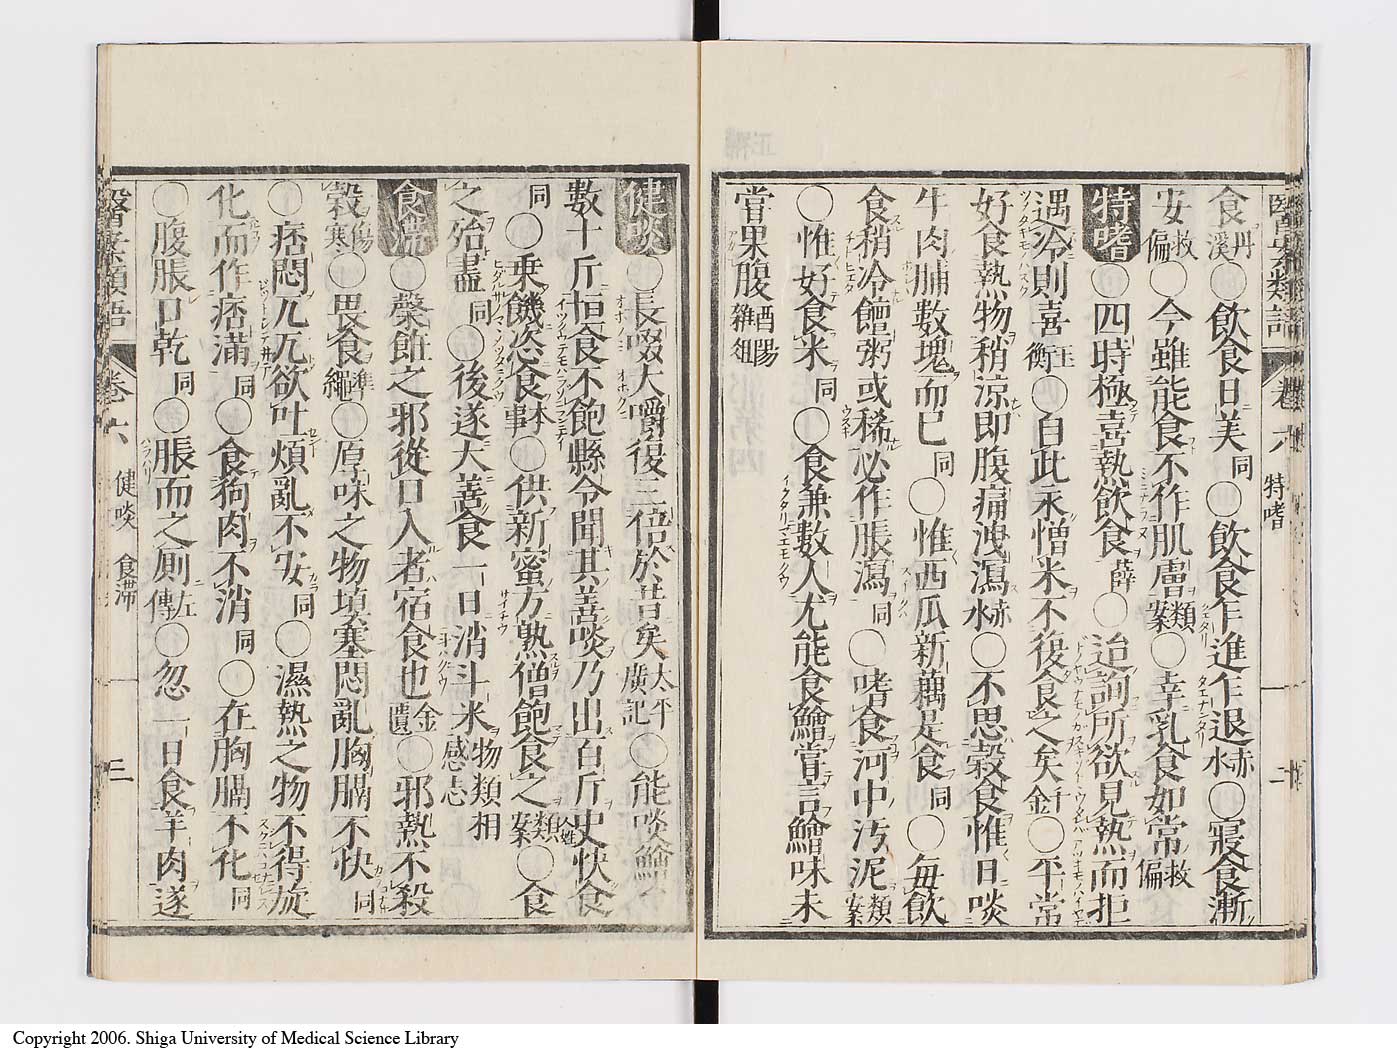 醫案類語 卷六 特嗜 二
食丹溪○飲食日美同○飲食乍進乍退赤水○寢食漸
安救偏○今雖能食不作肌膚類案○幸乳食如常救偏
特嗜○四時極喜熱飲食薛○迨詢所欲見熱而拒
遇冷則喜玉衡○自此永憎米不復食之矣千金○平常
好食熱物稍涼即腹痛洩瀉赤水○不思穀食惟日啖
牛肉脯數塊而已同○惟西瓜新藕是食同○每飲
食稍冷饘粥或稀必作脹瀉同○嗜食河中汚泥類案
○惟好食米同○食兼數人尤能食鱠嘗言鱠味未
嘗果腹酉陽雜俎
健啖○長啜大嚼復三倍於昔矣太平廣記○能啖鱠
數十斤恒食不飽縣令聞其善啖乃出百斤史快食
同○乘饑恣食本事○供新蜜方熟僧飽食之類案○食
之殆盡同○後遂大善食一日消斗米物類相感志
食滯○䅽飪之邪從口入者宿食也金匱○邪熱不殺
穀傷寒○畏食準繩○厚味之物填塞悶亂胸膈不快同
○痞悶兀兀欲吐煩亂不安同○濕熱之物不得旋
化而作痞滿同○食狗肉不消同○在胸膈不化同
○腹脹口乾同○脹而之厠左傳○忽一日食羊肉遂
醫案類語 卷六 健啖 食滯 三
Copyright 2006. Shiga University of Medical Science Library